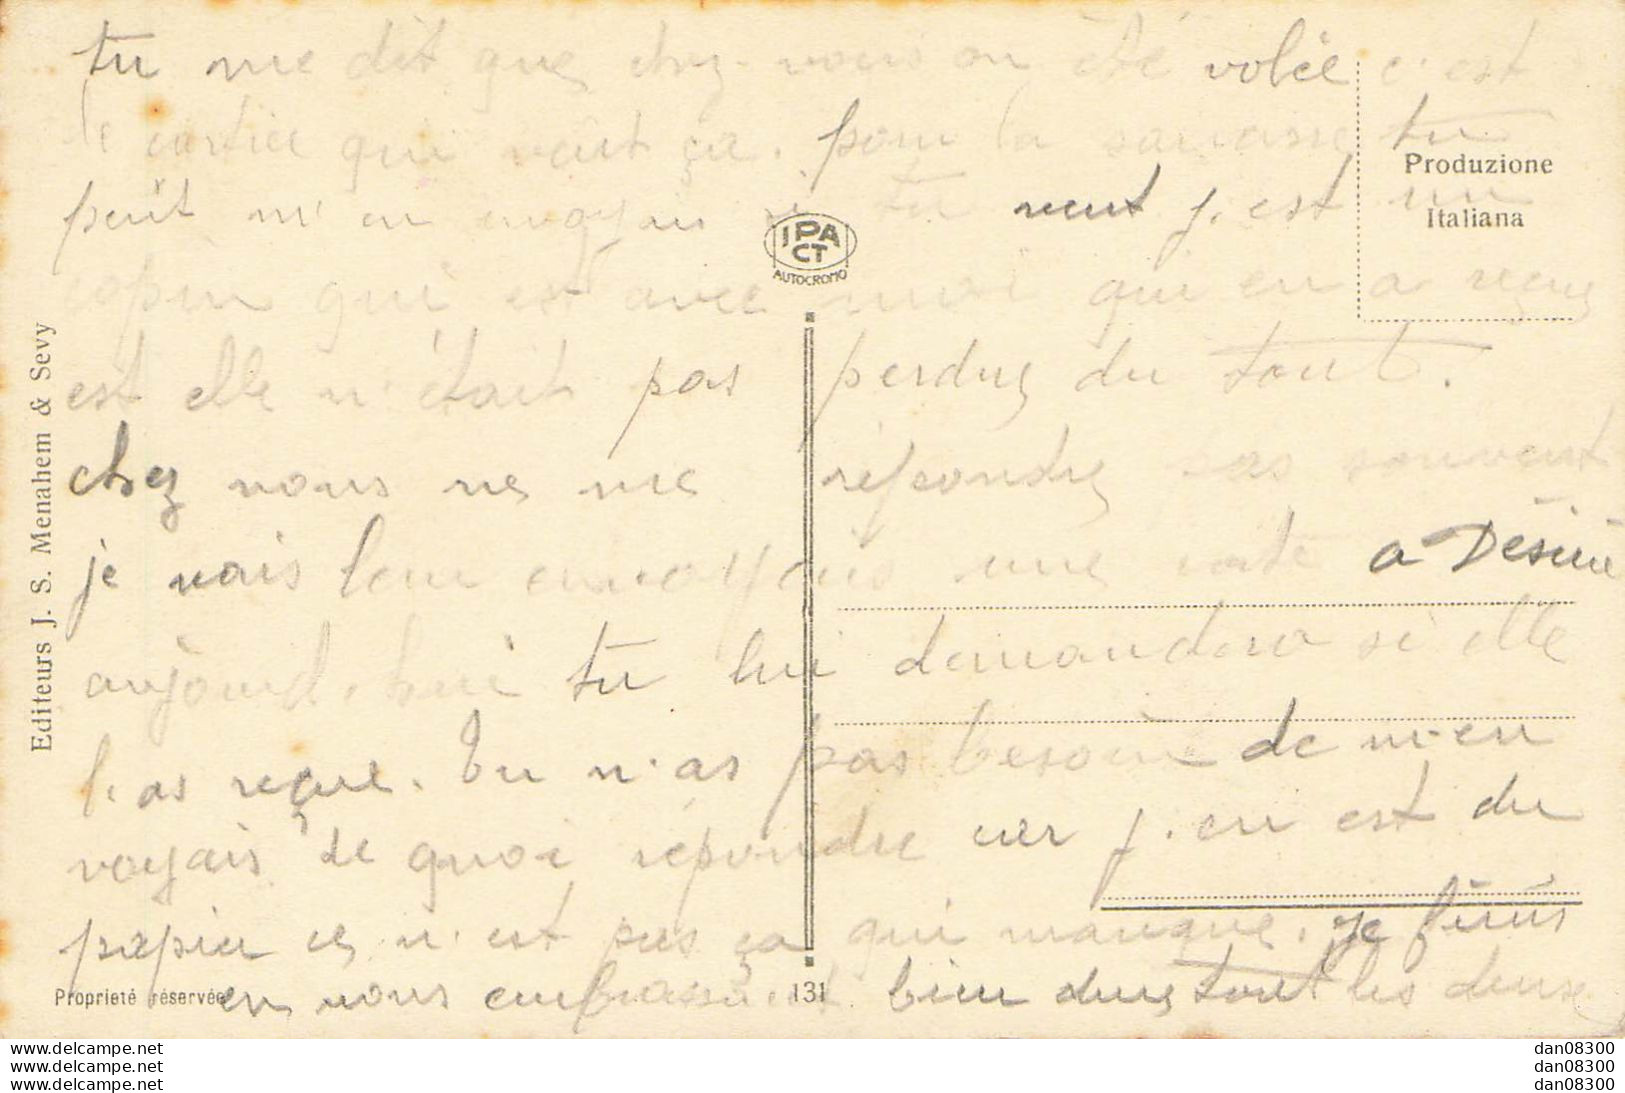 tu me dit que chez vous on été volée c'est
le cartier qui veut ça. pour la tu
peût m'en envoyer si tu veut j'est un
copin qui est avec moi qui en a reçue
est elle n'était pas perdue du tout.
chez nous ne me répondre pas souvent
je vais leur une carte a Désiré
aujourd'hui tu lui demandera si elle
l'as reçue. Tu n'as pas besoin de m'en
voyais de quoi répondre car j'en est du
papier ce n'est pas ça qui manque. je finis
en vous embrassant bien dure tout les deux
Produzione
Italiana
IPA
CT
AUTOCROMO
Editeurs J. S. Menahem & Sevy
Proprieté réservée
131
www.delcampe.net
www.delcampe.net
www.delcampe.net
dan08300
dan08300
dan08300